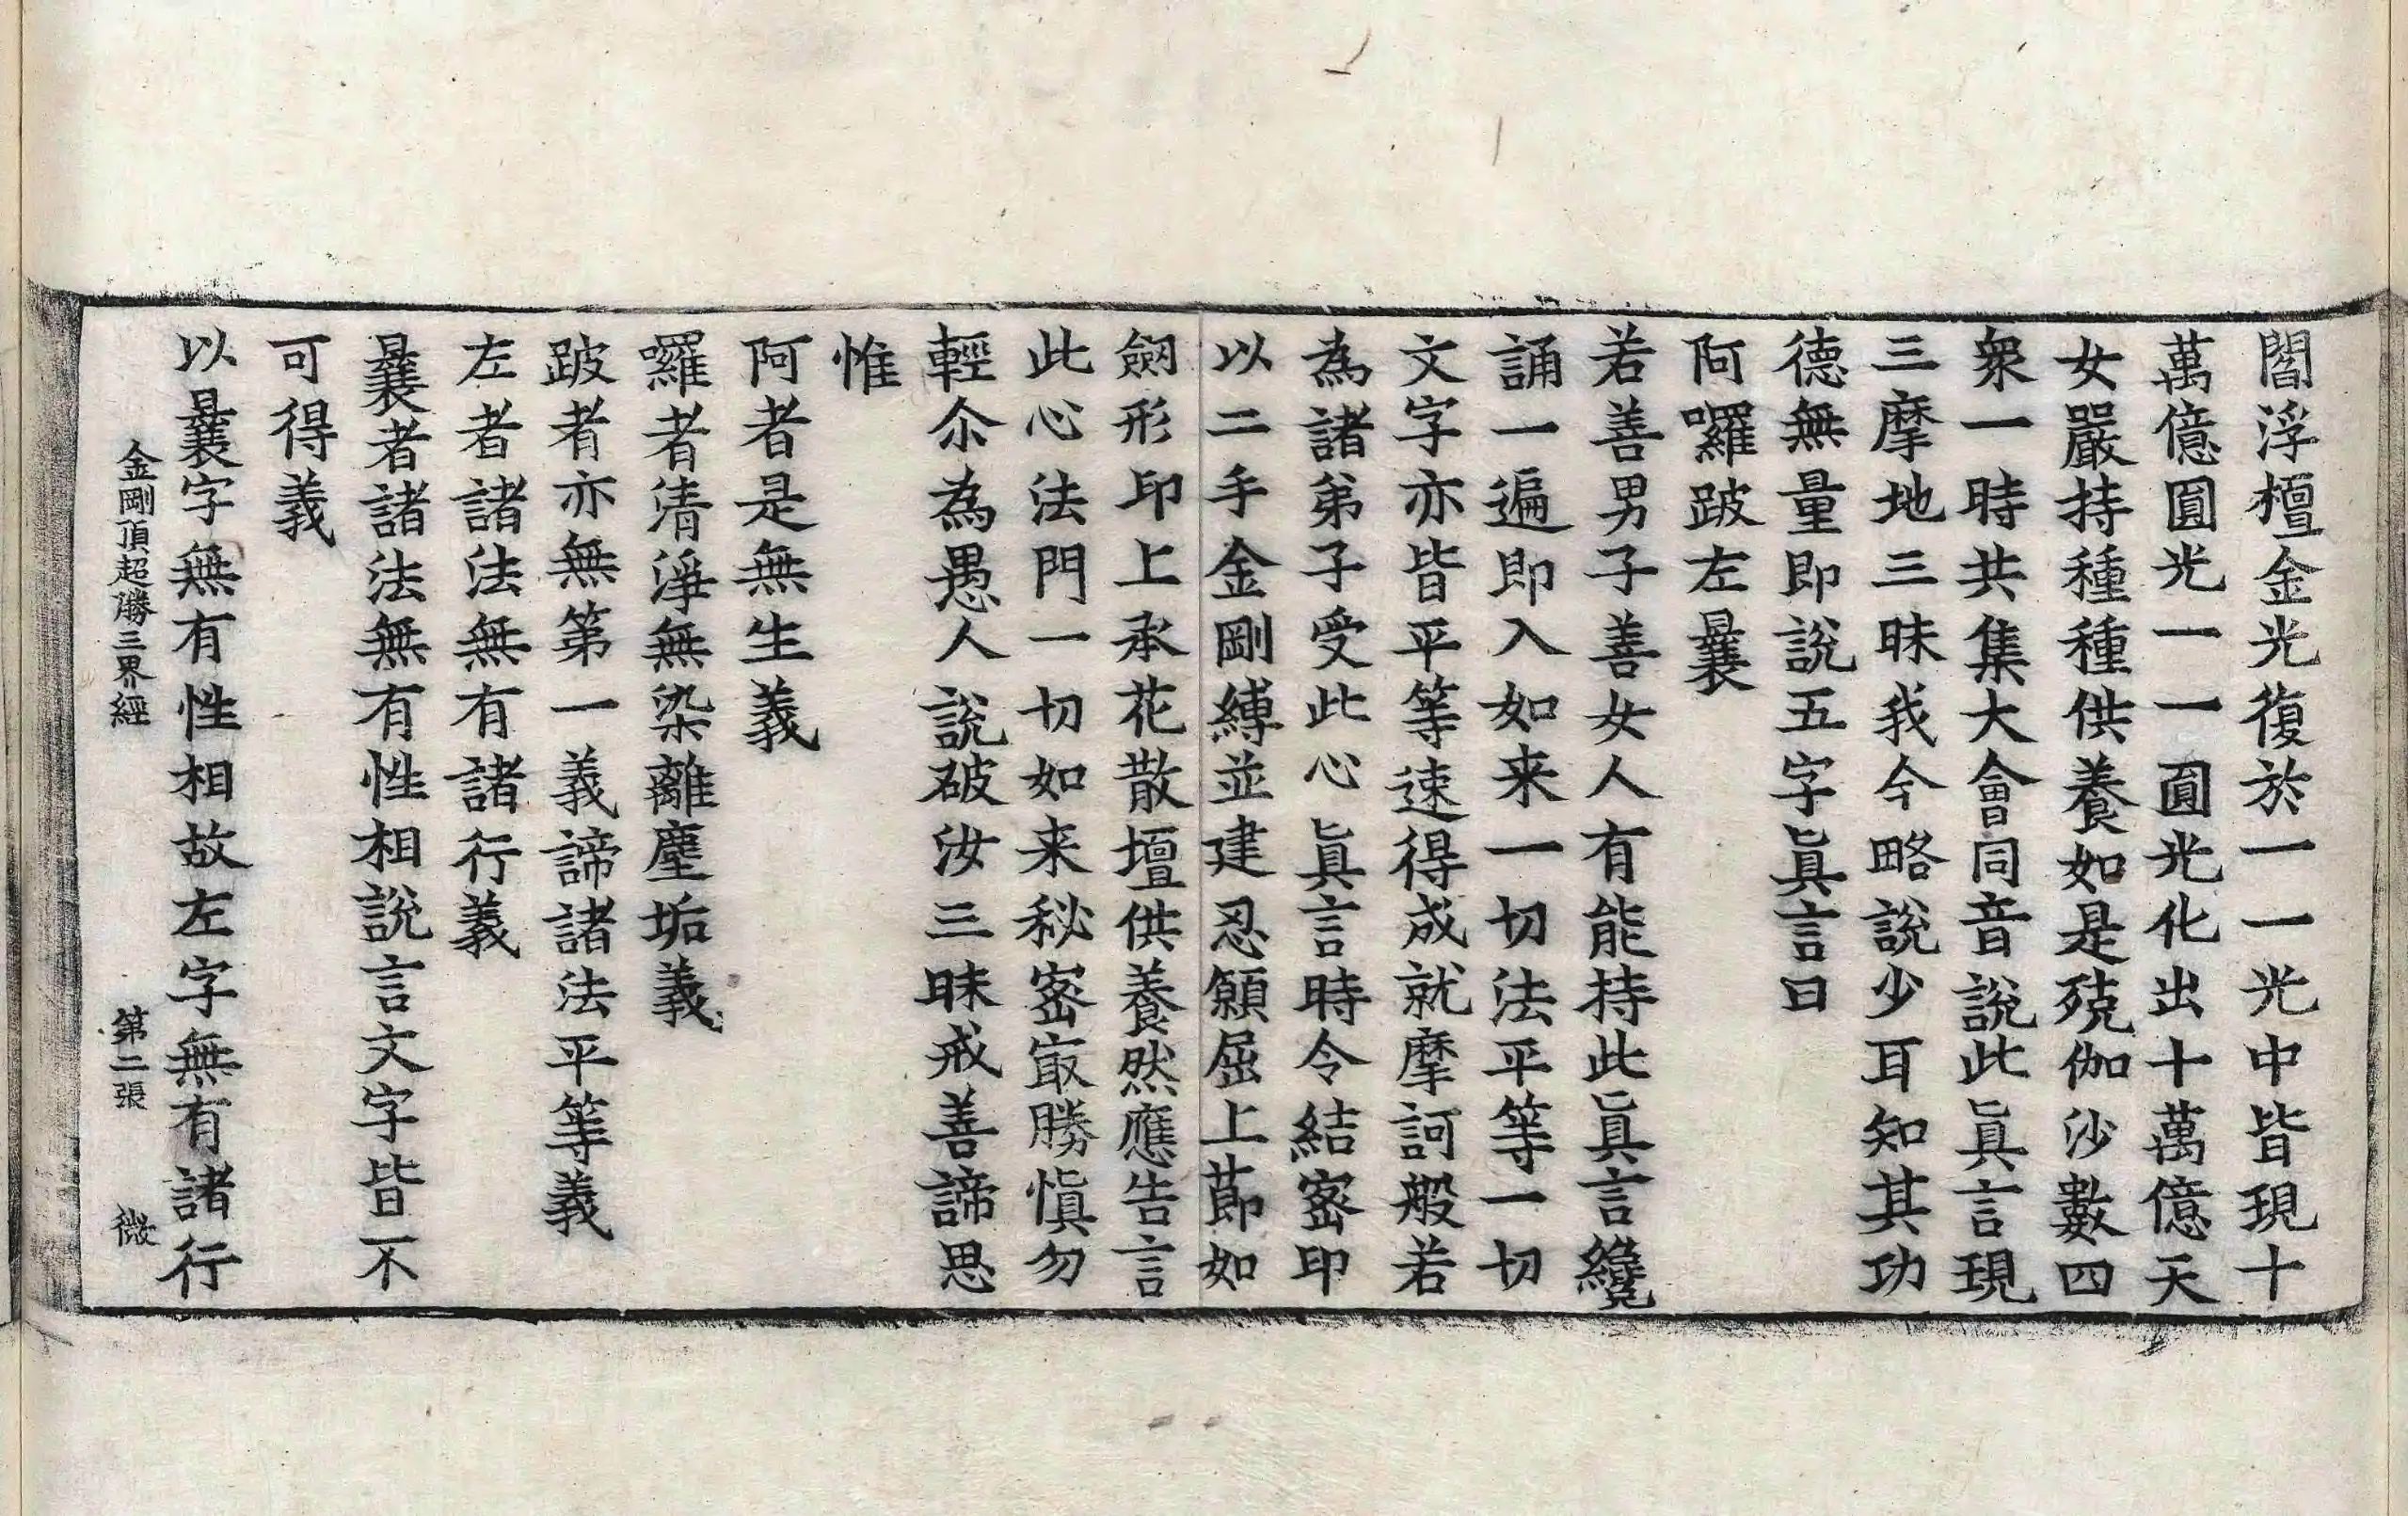 閻浮檀金光復於一一光中皆現十
萬億圓光一一圓光化出十萬億天
女嚴持種種供養如是殑伽沙數四
衆一時共集大會同音說此眞言現
三摩地三昧我今略說少耳知其功
德無量即說五字眞言曰
阿囉跛左曩
若善男子善女人有能持此眞言纔
誦一遍即入如来一切法平等一切
文字亦皆平等速得成就摩訶般若
為諸弟子受此心眞言時令結密印
以二手金剛縛並建忍願屈上莭如
劒形印上承花散壇供養然應告言
此心法門一切如来秘密㝡勝愼勿
輕尒為愚人說破汝三昧戒善諦思
惟
阿者是無生義
囉者清淨無染離塵垢義
跛者亦無第一義諦諸法平等義
左者諸法無有諸行義
曩者諸法無有性相說言文字皆不
可得義
以曩字無有性相故左字無有諸行
金剛頂超勝三界經 第二張 微